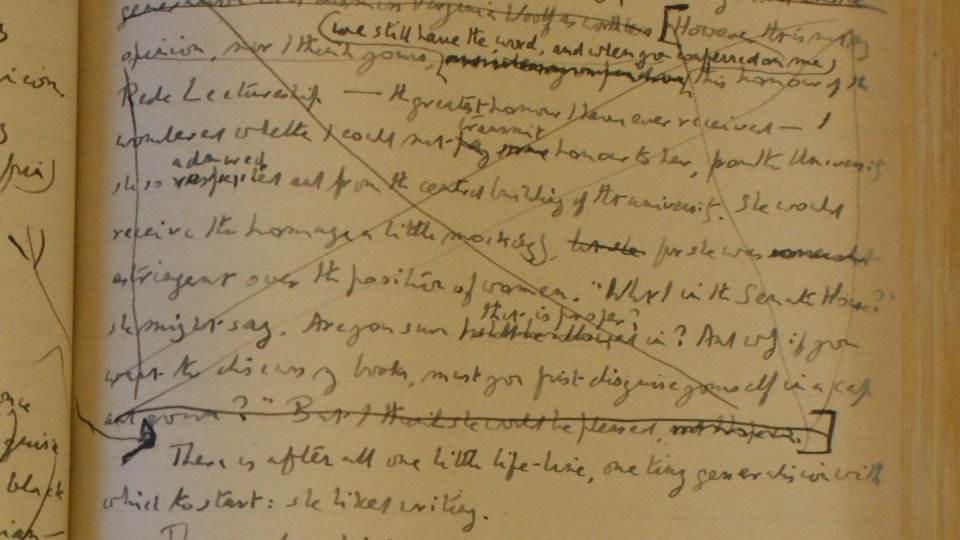 dismiss Virginia Woolf as worthless [However this is not my
(we still have the word, and when you conferred on me,)
opinion, nor I think yours, this honour of the
Rede Lectureship — the greatest honour I have ever received — I
transmit
wondered whether I could not some honour to her, from the University
admired
she so respected and from the central building of the university. She would
receive the homage a little mockingly, for she was somewhat
astringent over the position of women. "What! in the Senate House?"
that is proper?
she might say. Are you sure in? And why if you
want to discuss my books, must you first disguise yourself in a cap
and gown?" But I think she would be pleased,]
There is after all one little life-line, one tiny generalisation with
which to start: she liked writing.
icion.
once
guise
black